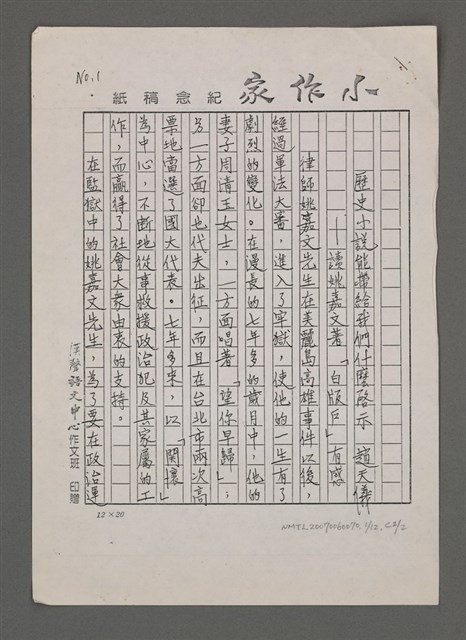 No.1
小作家紀念稿紙
歷史小說能帶給我們什麼啓示　趙天儀
——讀姚嘉文著「白版戶」有感
律師姚嘉文先生在美麗島高雄事件以後，
經過軍法大審，進入了牢獄，使他的一生有了
劇烈的變化。在漫長的七年多的歲月中，他的
妻子周清玉女士，一方面唱着「望你早歸」；
另一方面卻也代夫出征，而且在台北市兩次高
票地當選了國大代表。七年多來，以「關懷」
為中心，不斷地從事救援政治犯及其家屬的工
作，而贏得了社會大衆由衷的支持。
在監獄中的姚嘉文先生，為了要在政治運
漢聲語文中心作文班　印贈
12×20
NMTL20070060070, 1/12, C2/2